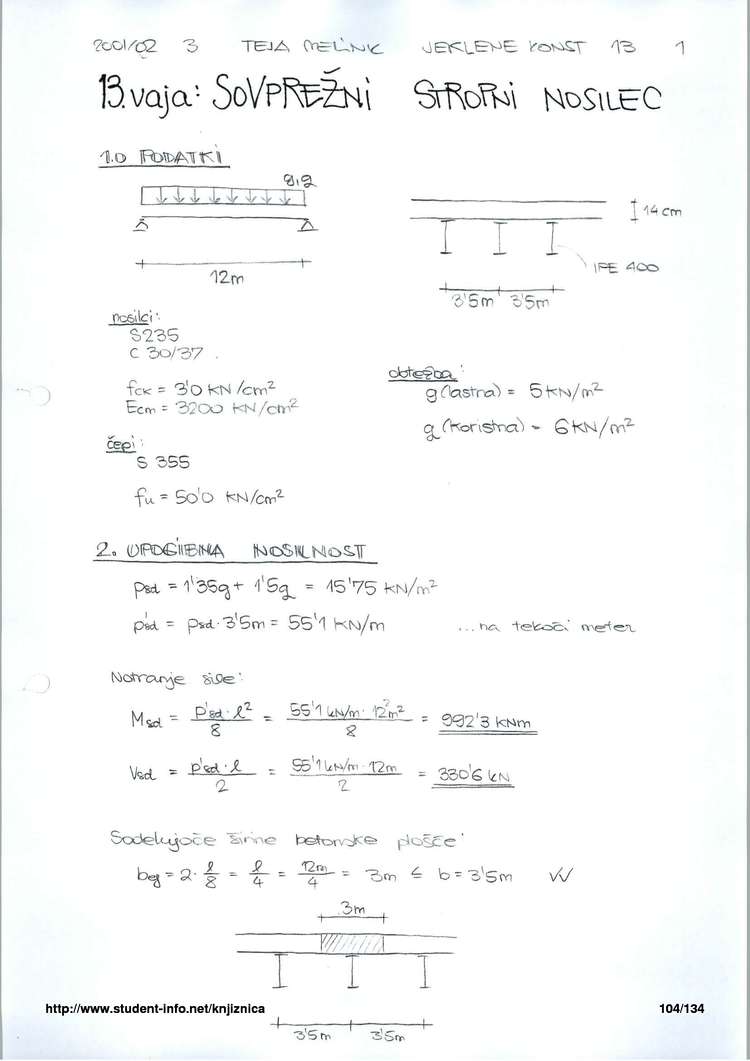 2001/02 3 TEJA MELINK JEKLENE KONST 13 1
13.vaja: SOVPREŽNI STROPNI NOSILEC
1.0 PODATKI
g,q
14 cm
IPE 400
12m
3'5m 3'5m
nosilci:
S235
C 30/37.
fck = 3'0 KN/cm²
Ecm = 3200 KN/cm²
obtežba:
g (lastna) = 5 KN/m²
q (koristna) = 6 KN/m²
čepi:
S 355
fu = 50'0 KN/cm²
2. UPOGIBNA NOSILNOST
psd = 1'35g + 1'5q = 15'75 KN/m²
p'sd = psd · 3'5m = 55'1 KN/m ...na tekoči meter
Notranje sile:
Msd = p'sd · l² / 8 = 55'1 kN/m · 12²m² / 8 = 992'3 KNm
Vsd = p'sd · l / 2 = 55'1 kN/m · 12m / 2 = 330'6 kN
Sodelujoče širine betonske plošče:
beg = 2 · l/8 = l/4 = 12m/4 = 3m ≤ b = 3'5m √√
3m
3'5m 3'5m
http://www.student-info.net/knjiznica 104/134